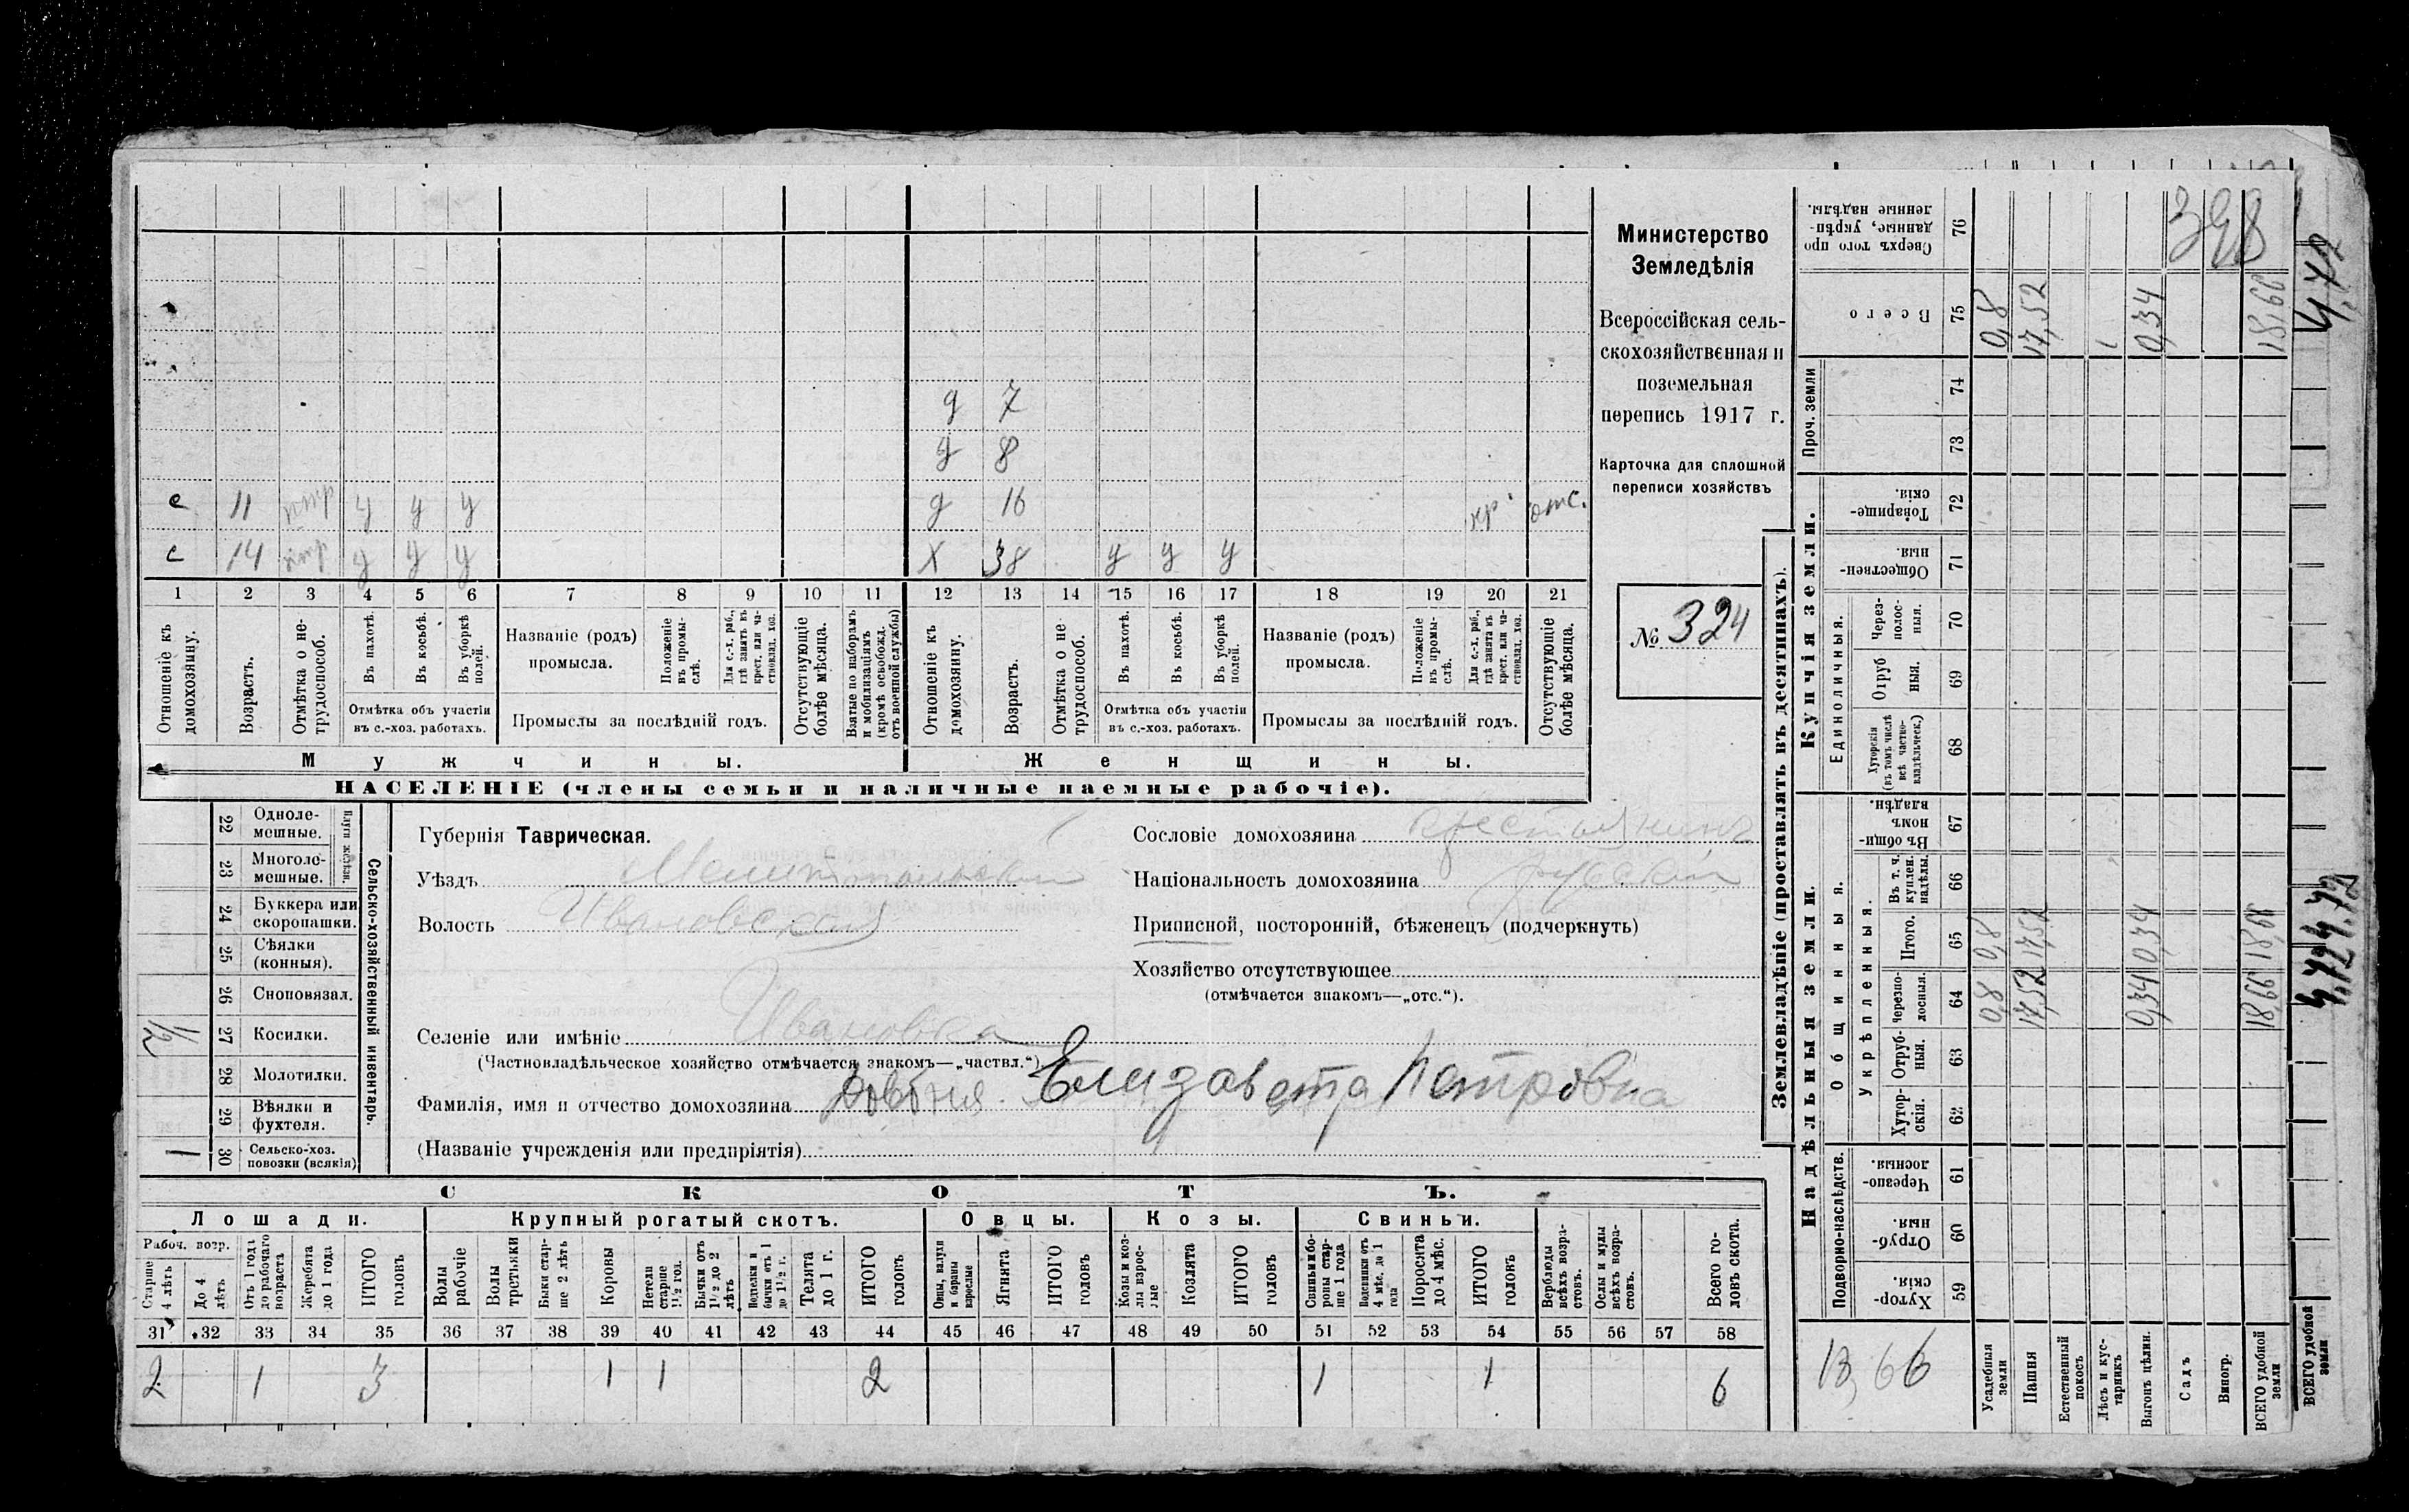 Министерство
Земледѣлія
Всероссійская сель-
скохозяйственная и
поземельная
перепись 1917 г.
Карточка для сплошной
переписи хозяйствъ
№ 324
д 7
д 8
с 11 у у у д 16 отс.
с 14 у у у х 38 у у у
1 2 3 4 5 6 7 8 9 10 11 12 13 14 15 16 17 18 19 20 21
Отношеніе къ домохозяину.
Возрастъ.
Отмѣтка о не-трудоспособ.
Въ пахотѣ.
Въ косьбѣ.
Въ уборкѣ полей.
Отмѣтка объ участіи въ с.-хоз. работахъ.
Названіе (родъ) промысла.
Положеніе въ промы-слѣ.
Для с.-х. раб., гдѣ занятъ въ крест. или ча-стновлад. хоз.
Промыслы за послѣдній годъ.
Отсутствующіе болѣе мѣсяца.
Взятые по наборамъ и мобилизаціямъ (кромѣ освобожд. отъ военной службы)
Отношеніе къ домохозяину.
Возрастъ.
Отмѣтка о не-трудоспособ.
Въ пахотѣ.
Въ косьбѣ.
Въ уборкѣ полей.
Отмѣтка объ участіи въ с.-хоз. работахъ.
Названіе (родъ) промысла.
Положеніе въ промы-слѣ.
Для с.-х. раб., гдѣ занята въ крест. или ча-стновлад. хоз.
Промыслы за послѣдній годъ.
Отсутствующіе болѣе мѣсяца.
Мужчины. Женщины.
НАСЕЛЕНІЕ (члены семьи и наличные наемные рабочіе).
Сельско-хозяйственный инвентарь.
Плуги желѣзн.
22 Однолемешные.
23 Многолемешные.
24 Буккера или скоропашки.
25 Сѣялки (конныя).
26 Сноповязал.
27 Косилки. 1/2
28 Молотилки.
29 Вѣялки и фухтеля.
30 Сельско-хоз. повозки (всякія) 1
Губернія Таврическая.
Уѣздъ Мелитопольскій
Волость Ивановская
Сословіе домохозяина крестьянинъ
Національность домохозяина русскій
Приписной, посторонній, бѣженецъ (подчеркнуть)
Хозяйство отсутствующее
(отмѣчается знакомъ—„отс.“).
Селеніе или имѣніе Ивановка
(Частновладѣльческое хозяйство отмѣчается знакомъ—„частвл.“)
Фамилія, имя и отчество домохозяина Довбня Елизавета Петровна
(Названіе учрежденія или предпріятія)
СКОТЪ.
Лошади. Крупный рогатый скотъ. Овцы. Козы. Свиньи.
Рабоч. возр.
Старше 4 лѣтъ
До 4 лѣтъ
Отъ 1 года до рабочаго возраста
Жеребята до 1 года
ИТОГО головъ
Волы рабочіе
Волы третьяки
Быки стар-ше 2 лѣтъ
Коровы
Нетели старше 1½ год.
Бычки отъ 1½ до 2 лѣтъ
Подтелки и бычки отъ 1 до 1½ г.
Телята до 1 г.
ИТОГО головъ
Овцы, валухи и бараны взрослые
Ягнята
ИТОГО головъ
Козы и коз-лы взрос-лые
Козлята
ИТОГО головъ
Свиньи и бо-ровы стар-ше 1 года
Подсвинки отъ 4 мѣс. до 1 года
Поросята до 4 мѣс.
ИТОГО головъ
Верблюды всѣхъ возра-стовъ.
Ослы и мулы всѣхъ возра-стовъ.
Всего го-ловъ скота.
31 32 33 34 35 36 37 38 39 40 41 42 43 44 45 46 47 48 49 50 51 52 53 54 55 56 57 58
2 1 3 1 1 2 1 1 6
Землевладѣніе (проставлять въ десятинахъ).
Надѣльныя земли. Купчія земли. Проч. земли
Подворно-наслѣдств. Общинныя. Укрѣпленныя. Единоличныя.
Хутор-скія. 59
Отруб-ныя. 60
Черезпо-лосныя. 61
Хутор-скія. 62
Отруб-ныя. 63
Черезпо-лосныя. 64
Итого. 65
Въ т. ч. куплен. надѣлы. 66
Въ общи-номъ владѣн. 67
Хуторскія (въ томъ числѣ всѣ частно-владѣльческ.) 68
Отруб ныя. 69
Через-полос-ныя. 70
Обществен-ныя. 71
Товарище-скія. 72
73
74
Всего 75
Сверхъ того про данные, укрѣп-ленные надѣлы. 76
Усадебныя земли 0,8 0,8 0,8
Пашня 17,52 17,52 17,52
Естественный покосъ
Лѣсъ и кус-тарникъ
Выгонъ цѣлин. 0,34 0,34 0,34
Садъ
Виногр.
ВСЕГО удобной земли 18,66 18,66 18,66
398
ВСЕГО удобной земли